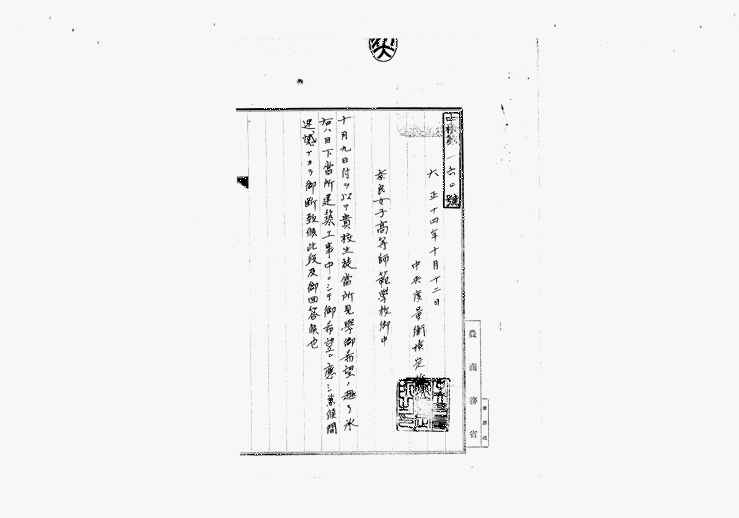 一六〇號
大正十四年十月十二日
中央度量衡檢定所
奈良女子高等師範學校御中
十月九日付ヲ以テ貴校生徒當所見學御希望ノ趣了承
右ハ目下當所建築工事中ニシテ御希望ニ應シ兼候間
遺憾ナカラ御斷致候此段及御回答候也
農商務省